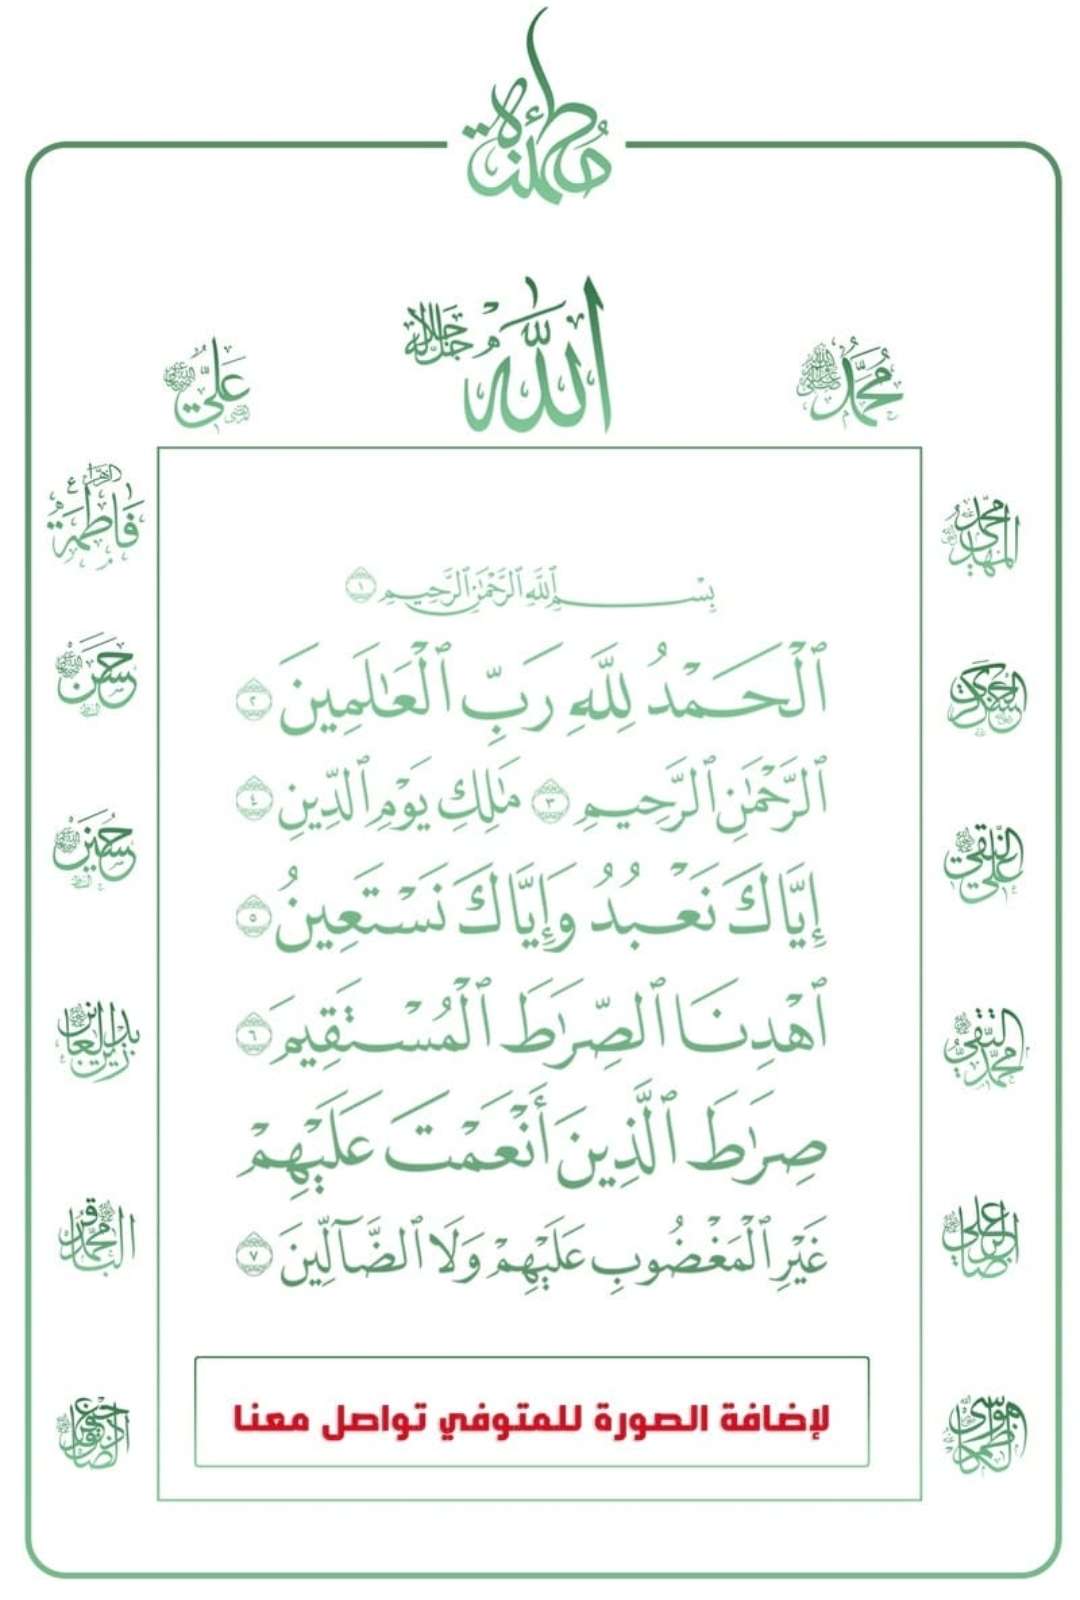 مطمئنة
الله جل جلاله
محمد
علي
فاطمة الزهراء ع
حسن
حسين
زين العابدين
محمد الباقر
جعفر الصادق
موسى الكاظم
علي الرضا
محمد التقي
علي النقي
العسكري
محمد المهدي
بِسْمِ ٱللَّهِ ٱلرَّحْمَٰنِ ٱلرَّحِيمِ ١
ٱلْحَمْدُ لِلَّهِ رَبِّ ٱلْعَٰلَمِينَ ٢
ٱلرَّحْمَٰنِ ٱلرَّحِيمِ ٣ مَٰلِكِ يَوْمِ ٱلدِّينِ ٤
إِيَّاكَ نَعْبُدُ وَإِيَّاكَ نَسْتَعِينُ ٥
ٱهْدِنَا ٱلصِّرَٰطَ ٱلْمُسْتَقِيمَ ٦
صِرَٰطَ ٱلَّذِينَ أَنْعَمْتَ عَلَيْهِمْ
غَيْرِ ٱلْمَغْضُوبِ عَلَيْهِمْ وَلَا ٱلضَّآلِّينَ ٧
لإضافة الصورة للمتوفي تواصل معنا